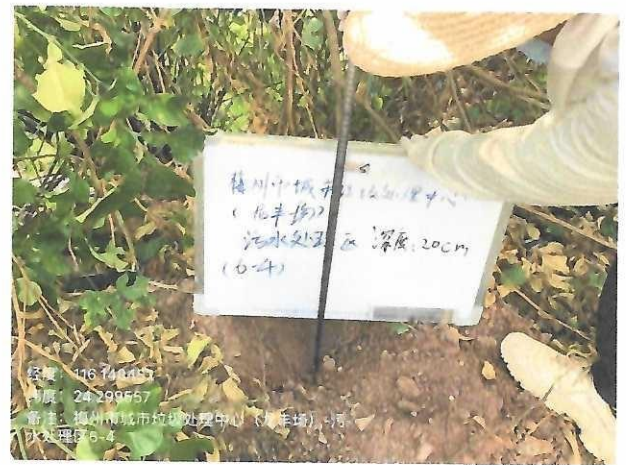 梅州市城市垃圾处理中心
(龙丰场)
污水处理区 深度:20cm
(6-4)
经度: 116.144457
纬度: 24.299557
备注: 梅州市城市垃圾处理中心(龙丰场)-污
水处理区6-4